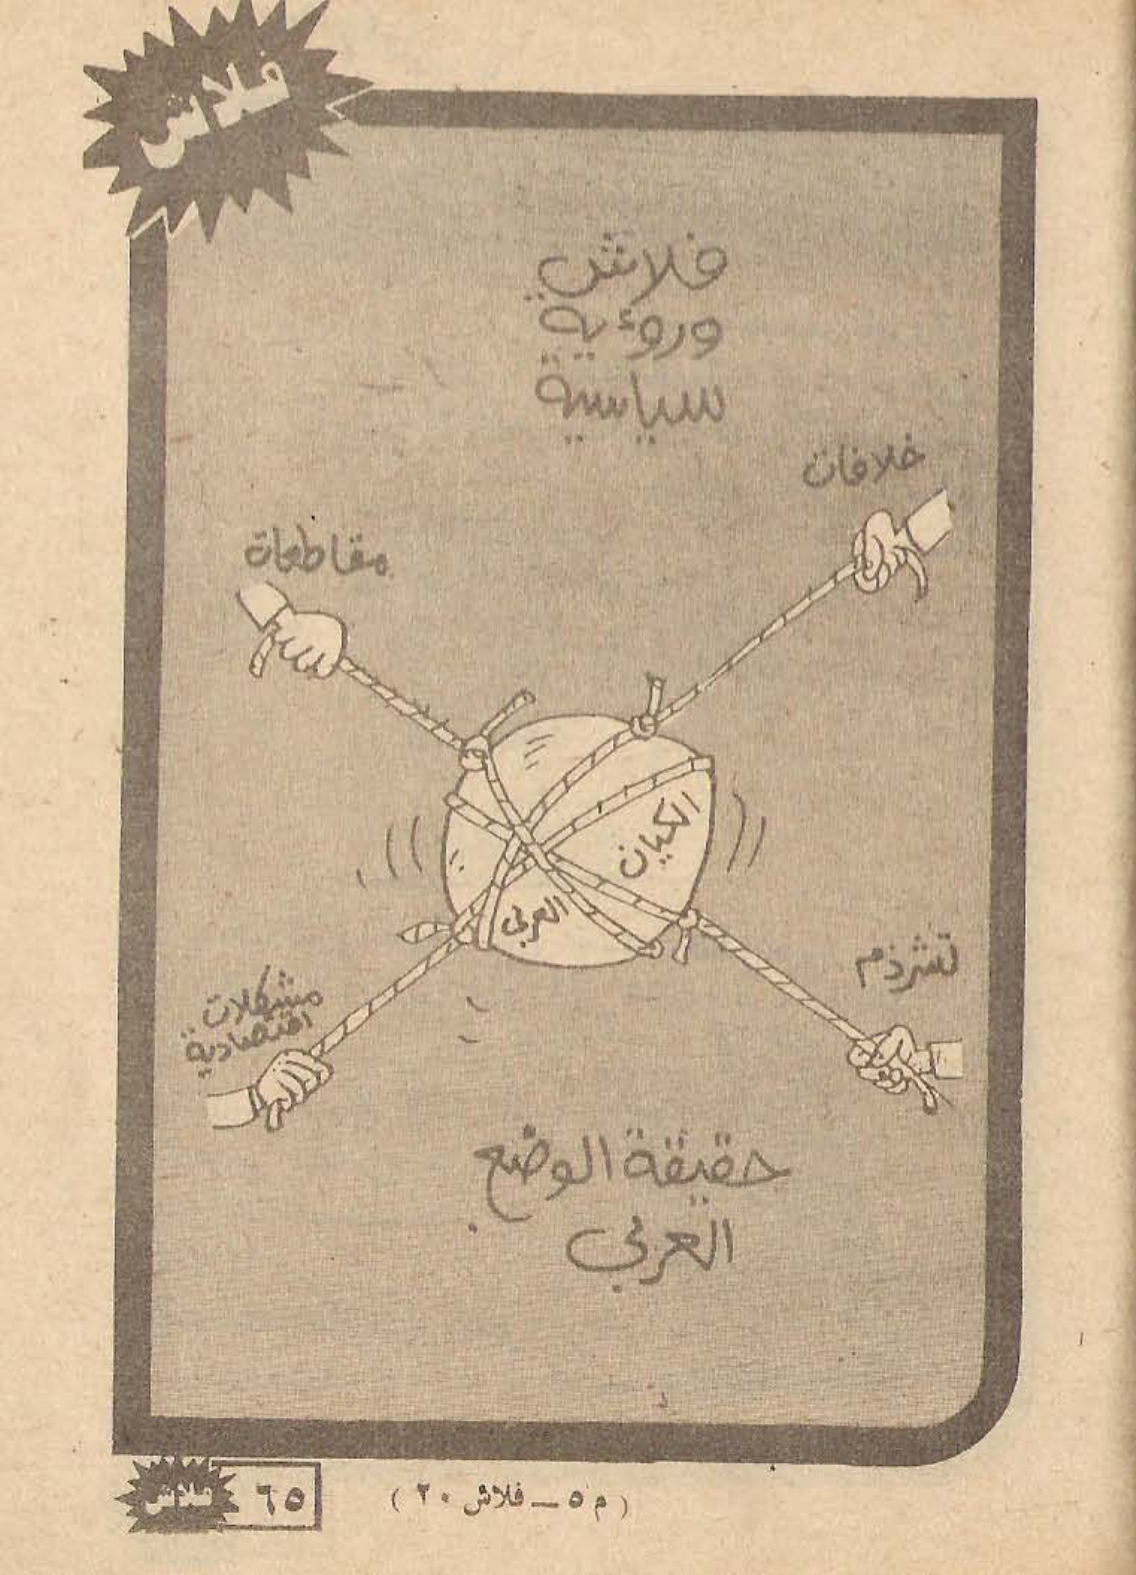 فلاش
فلاش
ورؤية
سياسية
خلافات
مقاطعات
الكيان
العربى
تشرذم
مشكلات
اقتصادية
حقيقة الوضع
العربى
( م ٥ ــ فلاش ٢٠ )
٦٥
فلاش